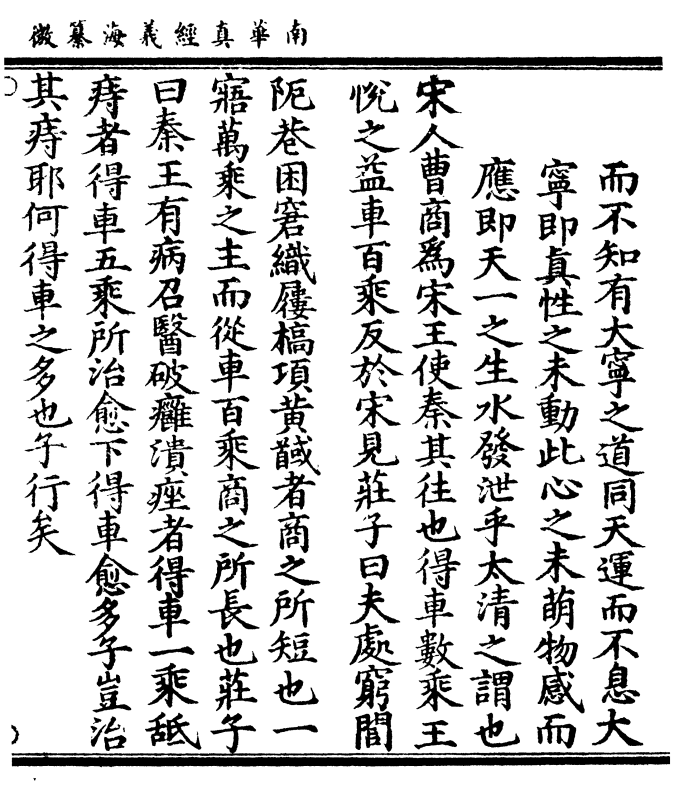 南華真經義海纂微
而不知有大寧之道同天運而不息大
寧即真性之未動此心之未萌物感而
應即天一之生水發泄乎太清之謂也
宋人曹商為宋王使秦其往也得車數乘王
悅之益車百乘反於宋見莊子曰夫處窮閭
阨巷困窘織屨槁項黃馘者商之所短也一
寤萬乘之主而從車百乘商之所長也莊子
曰秦王有病召醫破癰潰痤者得車一乘舐
痔者得車五乘所治愈下得車愈多子豈治
其痔耶何得車之多也子行矣